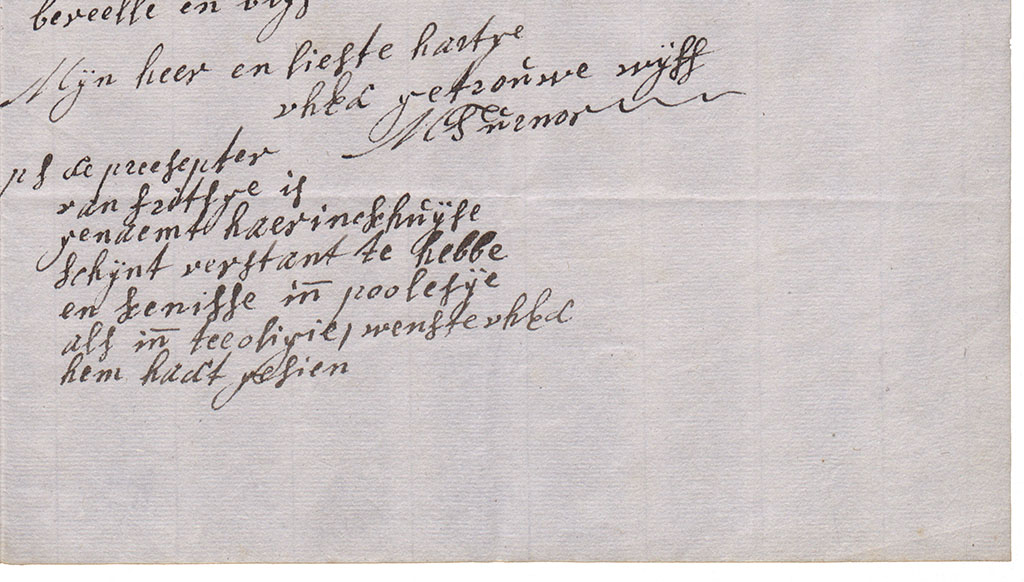 bereelle en blyf
Mÿn heer en liefste hartye
vhEd getrouwe wÿff
M Turnor
ps de preesepter
van fritsye is
genaemt haerinckhuÿse
schÿnt verstant te hebbe
en kenisse in poolesÿe
als in teeoligie, wenste vhEd
hem hadt gesien